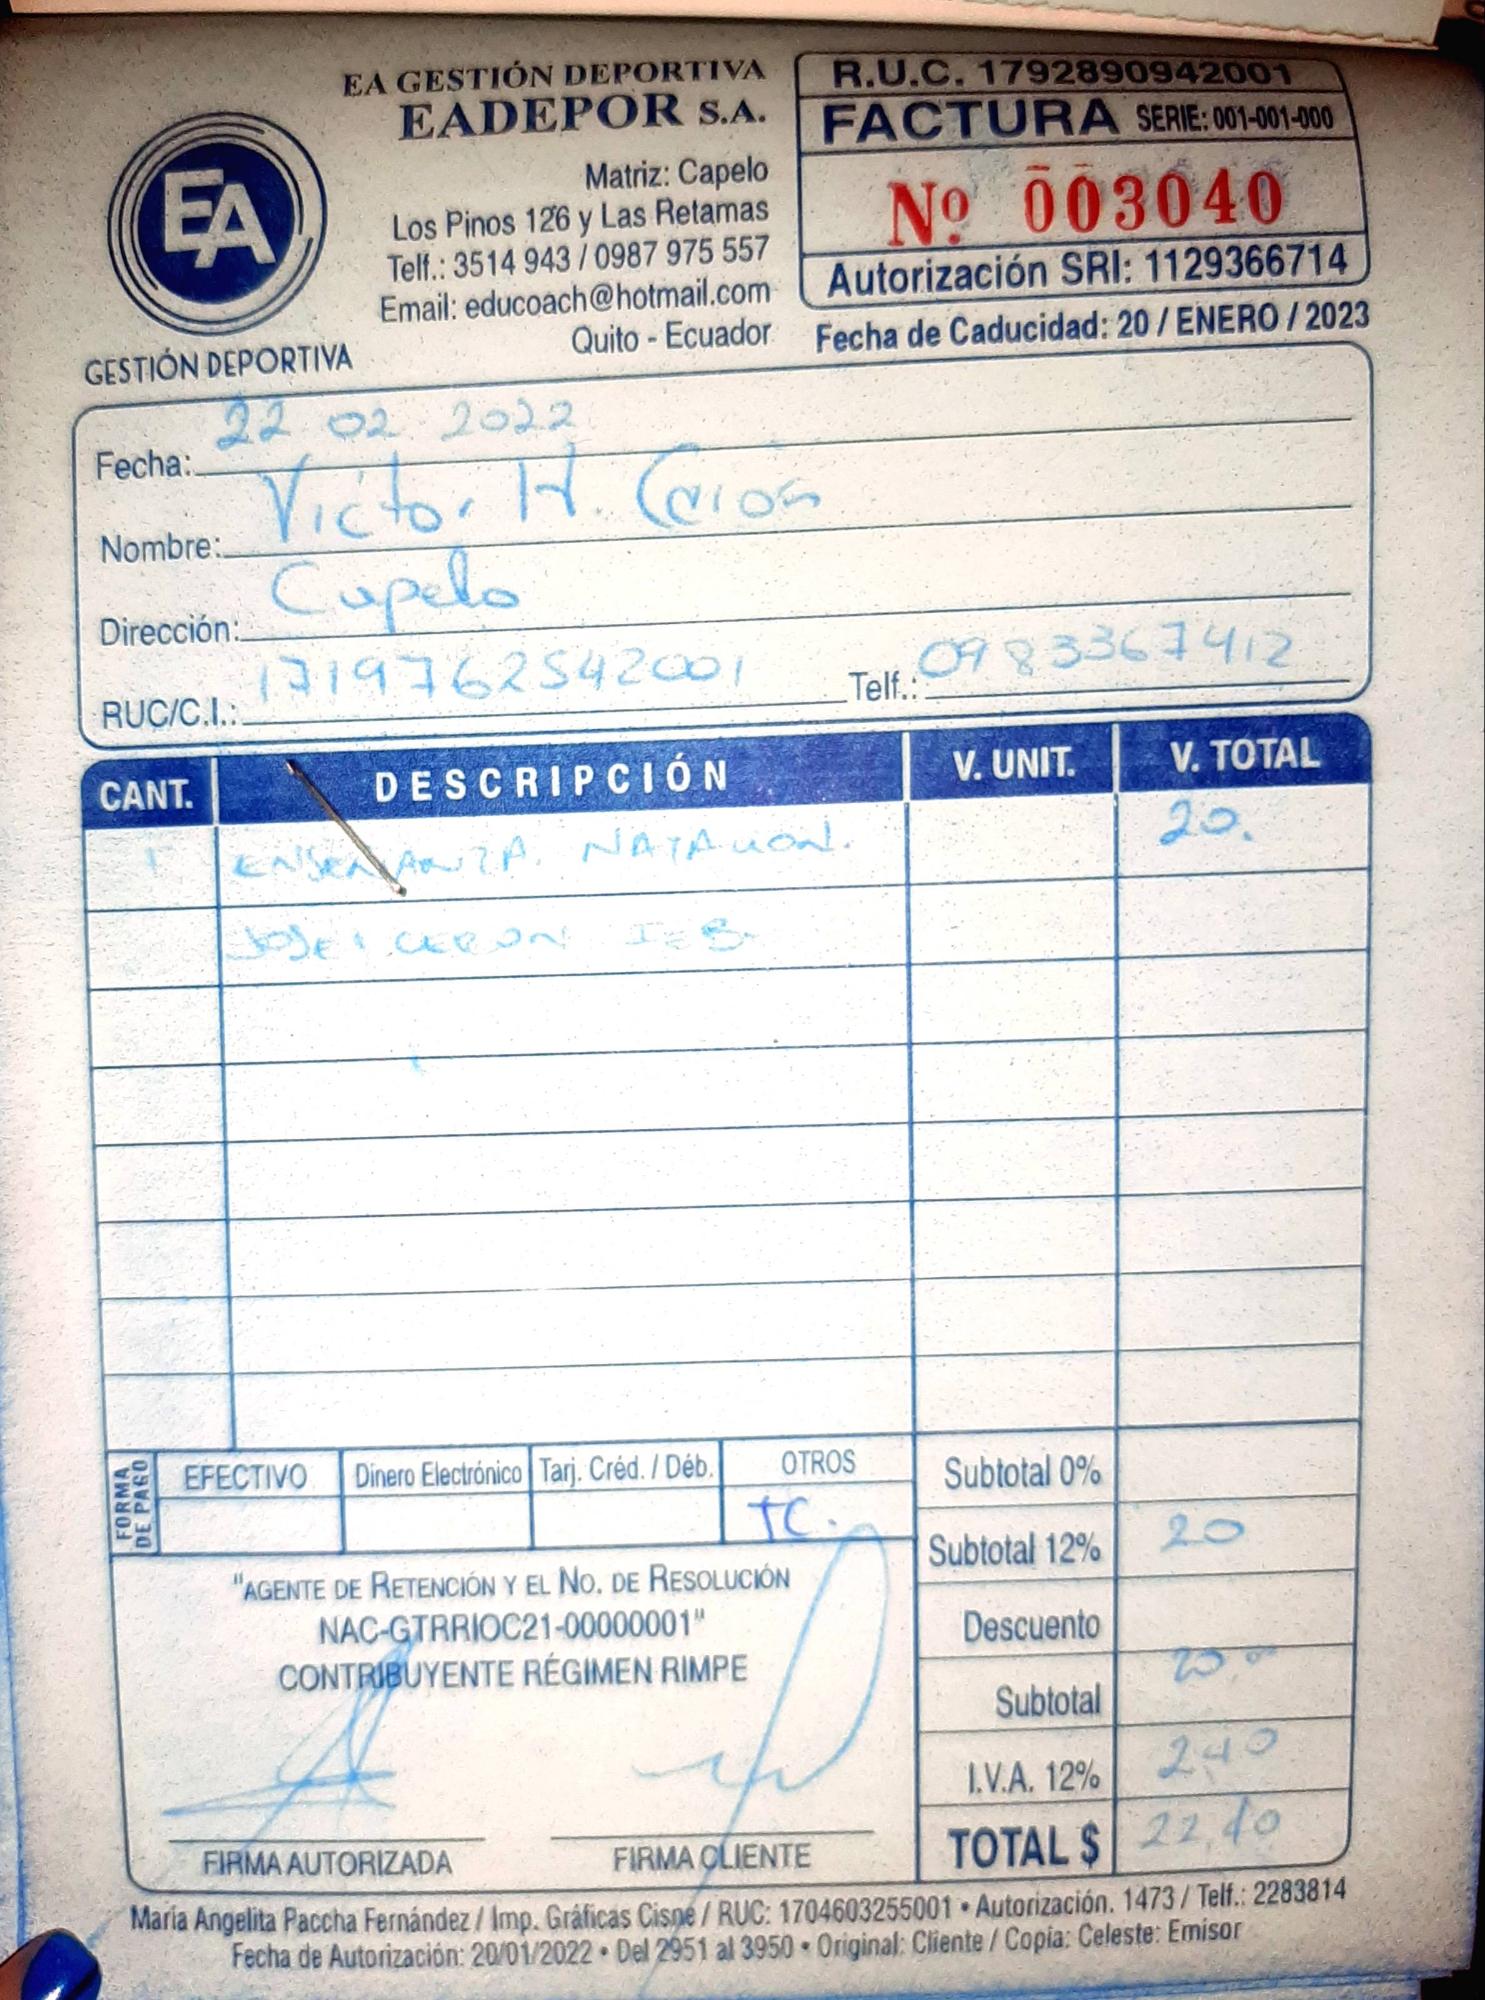 EA GESTIÓN DEPORTIVA
EADEPOR S.A.
Matriz: Capelo
Los Pinos 126 y Las Retamas
Telf.: 3514 943 / 0987 975 557
Email: educoach@hotmail.com
Quito - Ecuador
EA
GESTIÓN DEPORTIVA
R.U.C. 1792890942001
FACTURA SERIE: 001-001-000
Nº 003040
Autorización SRI: 1129366714
Fecha de Caducidad: 20 / ENERO / 2023
Fecha: 22 02 2022
Nombre: Victor H.
Dirección: Capelo
RUC/C.I.: 1719762542001 Telf.: 0983367412
CANT. DESCRIPCIÓN V. UNIT. V. TOTAL
1 ENSEÑANZA NATACION. 20.
JOSE CERON
FORMA DE PAGO EFECTIVO Dinero Electrónico Tarj. Créd. / Déb. OTROS
TC.
Subtotal 0%
Subtotal 12% 20
Descuento
Subtotal 20.
I.V.A. 12% 2.40
TOTAL $ 22.40
"AGENTE DE RETENCIÓN Y EL NO. DE RESOLUCIÓN
NAC-GTRRIOC21-00000001"
CONTRIBUYENTE RÉGIMEN RIMPE
FIRMA AUTORIZADA FIRMA CLIENTE
María Angelita Paccha Fernández / Imp. Gráficas Cisne / RUC: 1704603255001 • Autorización. 1473 / Telf.: 2283814
Fecha de Autorización: 20/01/2022 • Del 2951 al 3950 • Original: Cliente / Copia: Celeste: Emisor